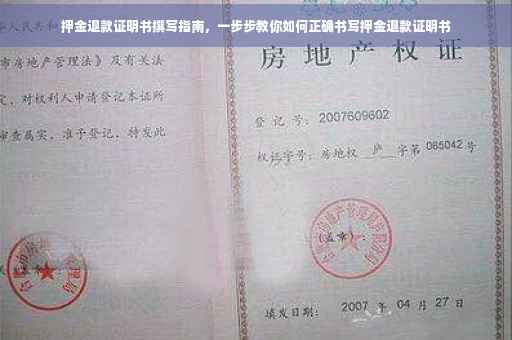 押金退款证明书撰写指南，一步步教你如何正确书写押金退款证明书
华人民共和
市房地产管理法》及有关法
定，对权利人申请登记本证所
审查属实，准予登记，特发此
房地产权证
登记号：2007609602
权证字号：房地权 庐 字第 085042 号
(盖章)：
填发日期： 2007 年 04 月 27 日